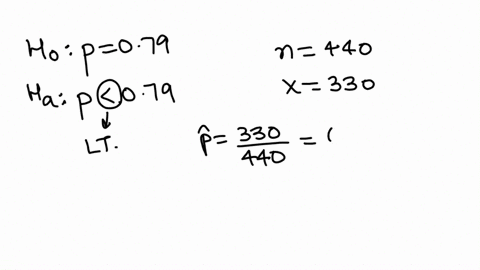 H₀: p=0.79
Hₐ: p<0.79
LT.
n=440
x=330
p̂=330/440=(